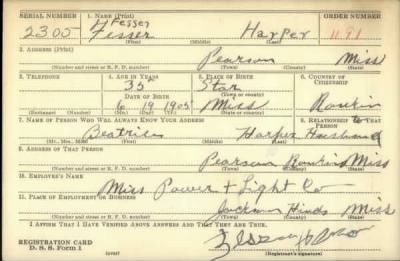 SERIAL NUMBER 1. NAME (Print) ORDER NUMBER
Fesser
2305 Fesser Harper 1191
(First) (Middle) (Last)
2. ADDRESS (Print)
Pearson Miss
(Number and street or R. F. D. number) (Town) (County) (State)
3. TELEPHONE 4. AGE IN YEARS 5. PLACE OF BIRTH 6. COUNTRY OF CITIZENSHIP
35 Star
DATE OF BIRTH (Town or county)
6 19 1905 Miss Rankin
(Exchange) (Number) (Mo.) (Day) (Yr.) (State or country)
7. NAME OF PERSON WHO WILL ALWAYS KNOW YOUR ADDRESS 8. RELATIONSHIP TO THAT PERSON
Beatrice Harper Husband
(Mr., Mrs., Miss) (First) (Middle) (Last)
9. ADDRESS OF THAT PERSON
Pearson Rankin Miss
(Number and street or R. F. D. number) (Town) (County) (State)
10. EMPLOYER'S NAME
Miss Power + Light Co
11. PLACE OF EMPLOYMENT OR BUSINESS
Jackson Hinds Miss
(Number and street or R. F. D. number) (Town) (County) (State)
I AFFIRM THAT I HAVE VERIFIED ABOVE ANSWERS AND THAT THEY ARE TRUE.
REGISTRATION CARD
D. S. S. Form 1
(over) (Registrant's signature)